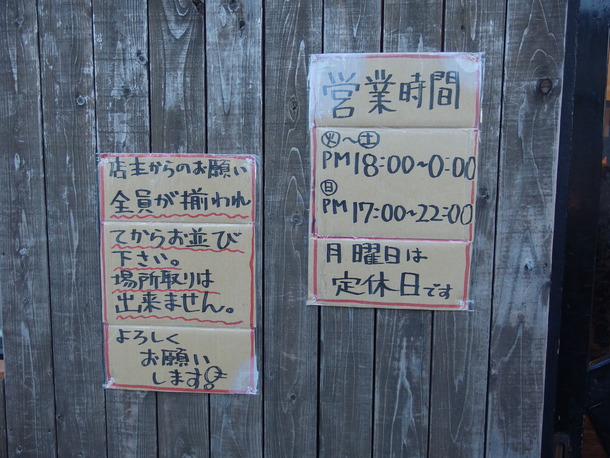 店主からのお願い
全員が揃われ
てからお並び
下さい。
場所取りは
出来ません。
よろしく
お願い
します!
営業時間
㊋〜㊏
PM18:00〜0:00
㊐
PM17:00〜22:00
月曜日は
定休日です